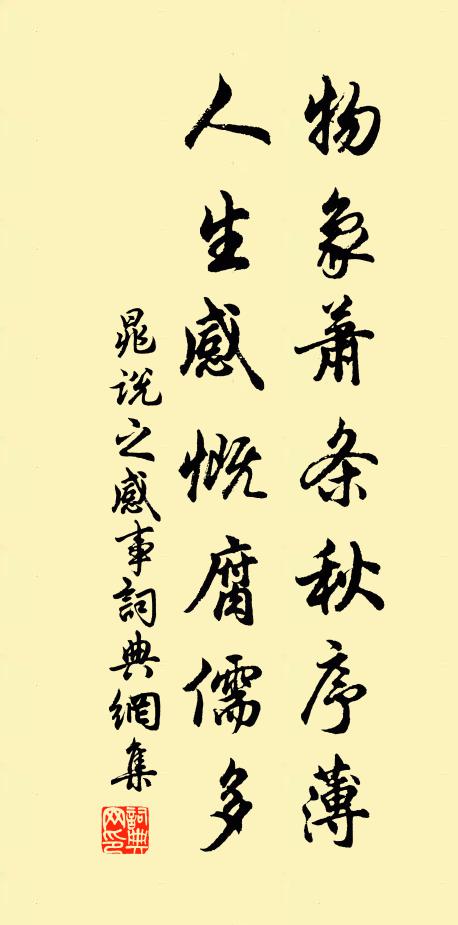 物象蕭条秋序薄
人生感慨腐儒多
晁説之感事詞典網集
詞典网印